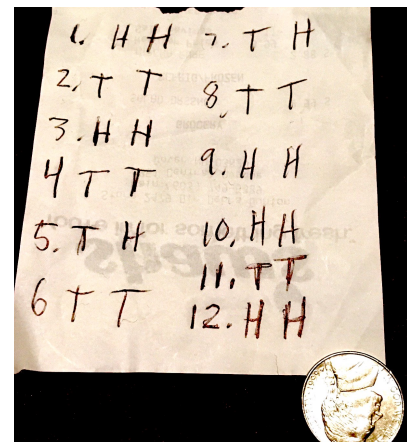 1. H H
2. T T
3. H H
4 T T
5. T H
6 T T
7. T H
8. T T
9. H H
10. H H
11. T T
12. H H